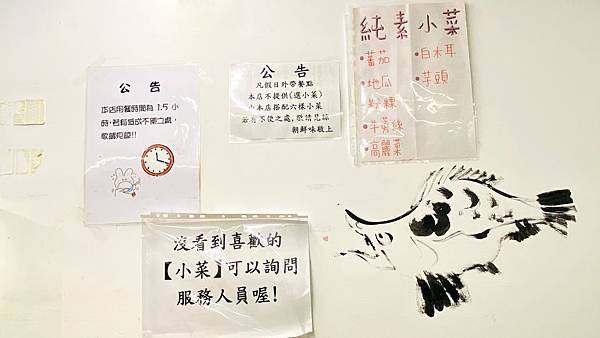 公告
本店用餐時間為 1.5 小
時,若有造成不便之處,
敬請見諒!!
公告
凡假日外帶餐點
本店不提供(選小菜)
由本店搭配六樣小菜
若有不便之處,敬請見諒
朝鮮味敬上
純素小菜
•蕃茄
•地瓜
•粉粿
•牛蒡絲
•高麗菜
•白木耳
•芋頭
沒看到喜歡的
【小菜】可以詢問
服務人員喔!